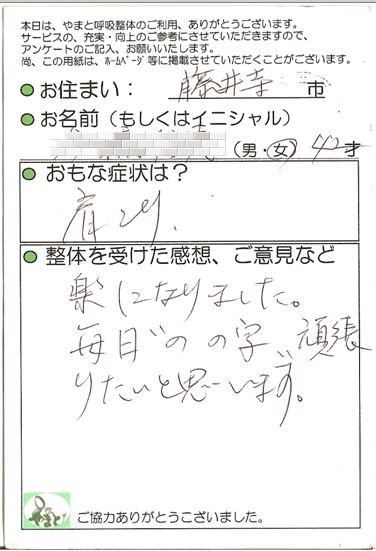 本日は、やまと呼吸整体のご利用、ありがとうございます。
サービスの、充実・向上のご参考にさせていただきますので、
アンケートのご記入、お願いいたします。
尚、この用紙は、ホームページ等に掲載させていただくことがございます。
お住まい：藤井寺市
お名前（もしくはイニシャル）
（男・女）42才
おもな症状は？
肩こり、
整体を受けた感想、ご意見など
楽になりました。
毎日"のの字"頑張
りたいと思います。
やまと
ご協力ありがとうこざいました。